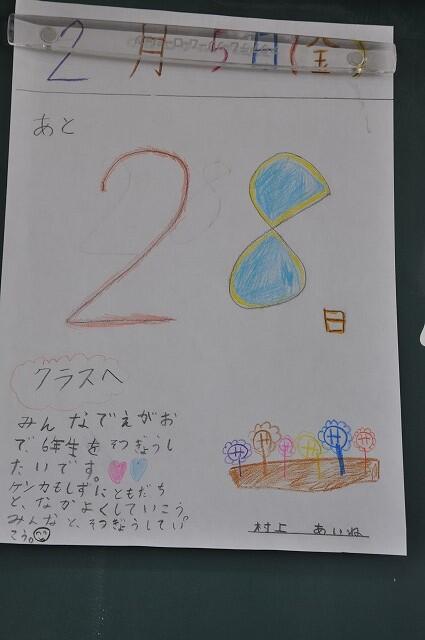 2月5日(金)
あと
28
日
クラスへ
みんなでえがお
で、6年生をそつぎょうし
たいです。
ケンカもしずにともだち
と、なかよくしていこう。
みんなと、そつぎょうしてい
こう。
村上 あいね